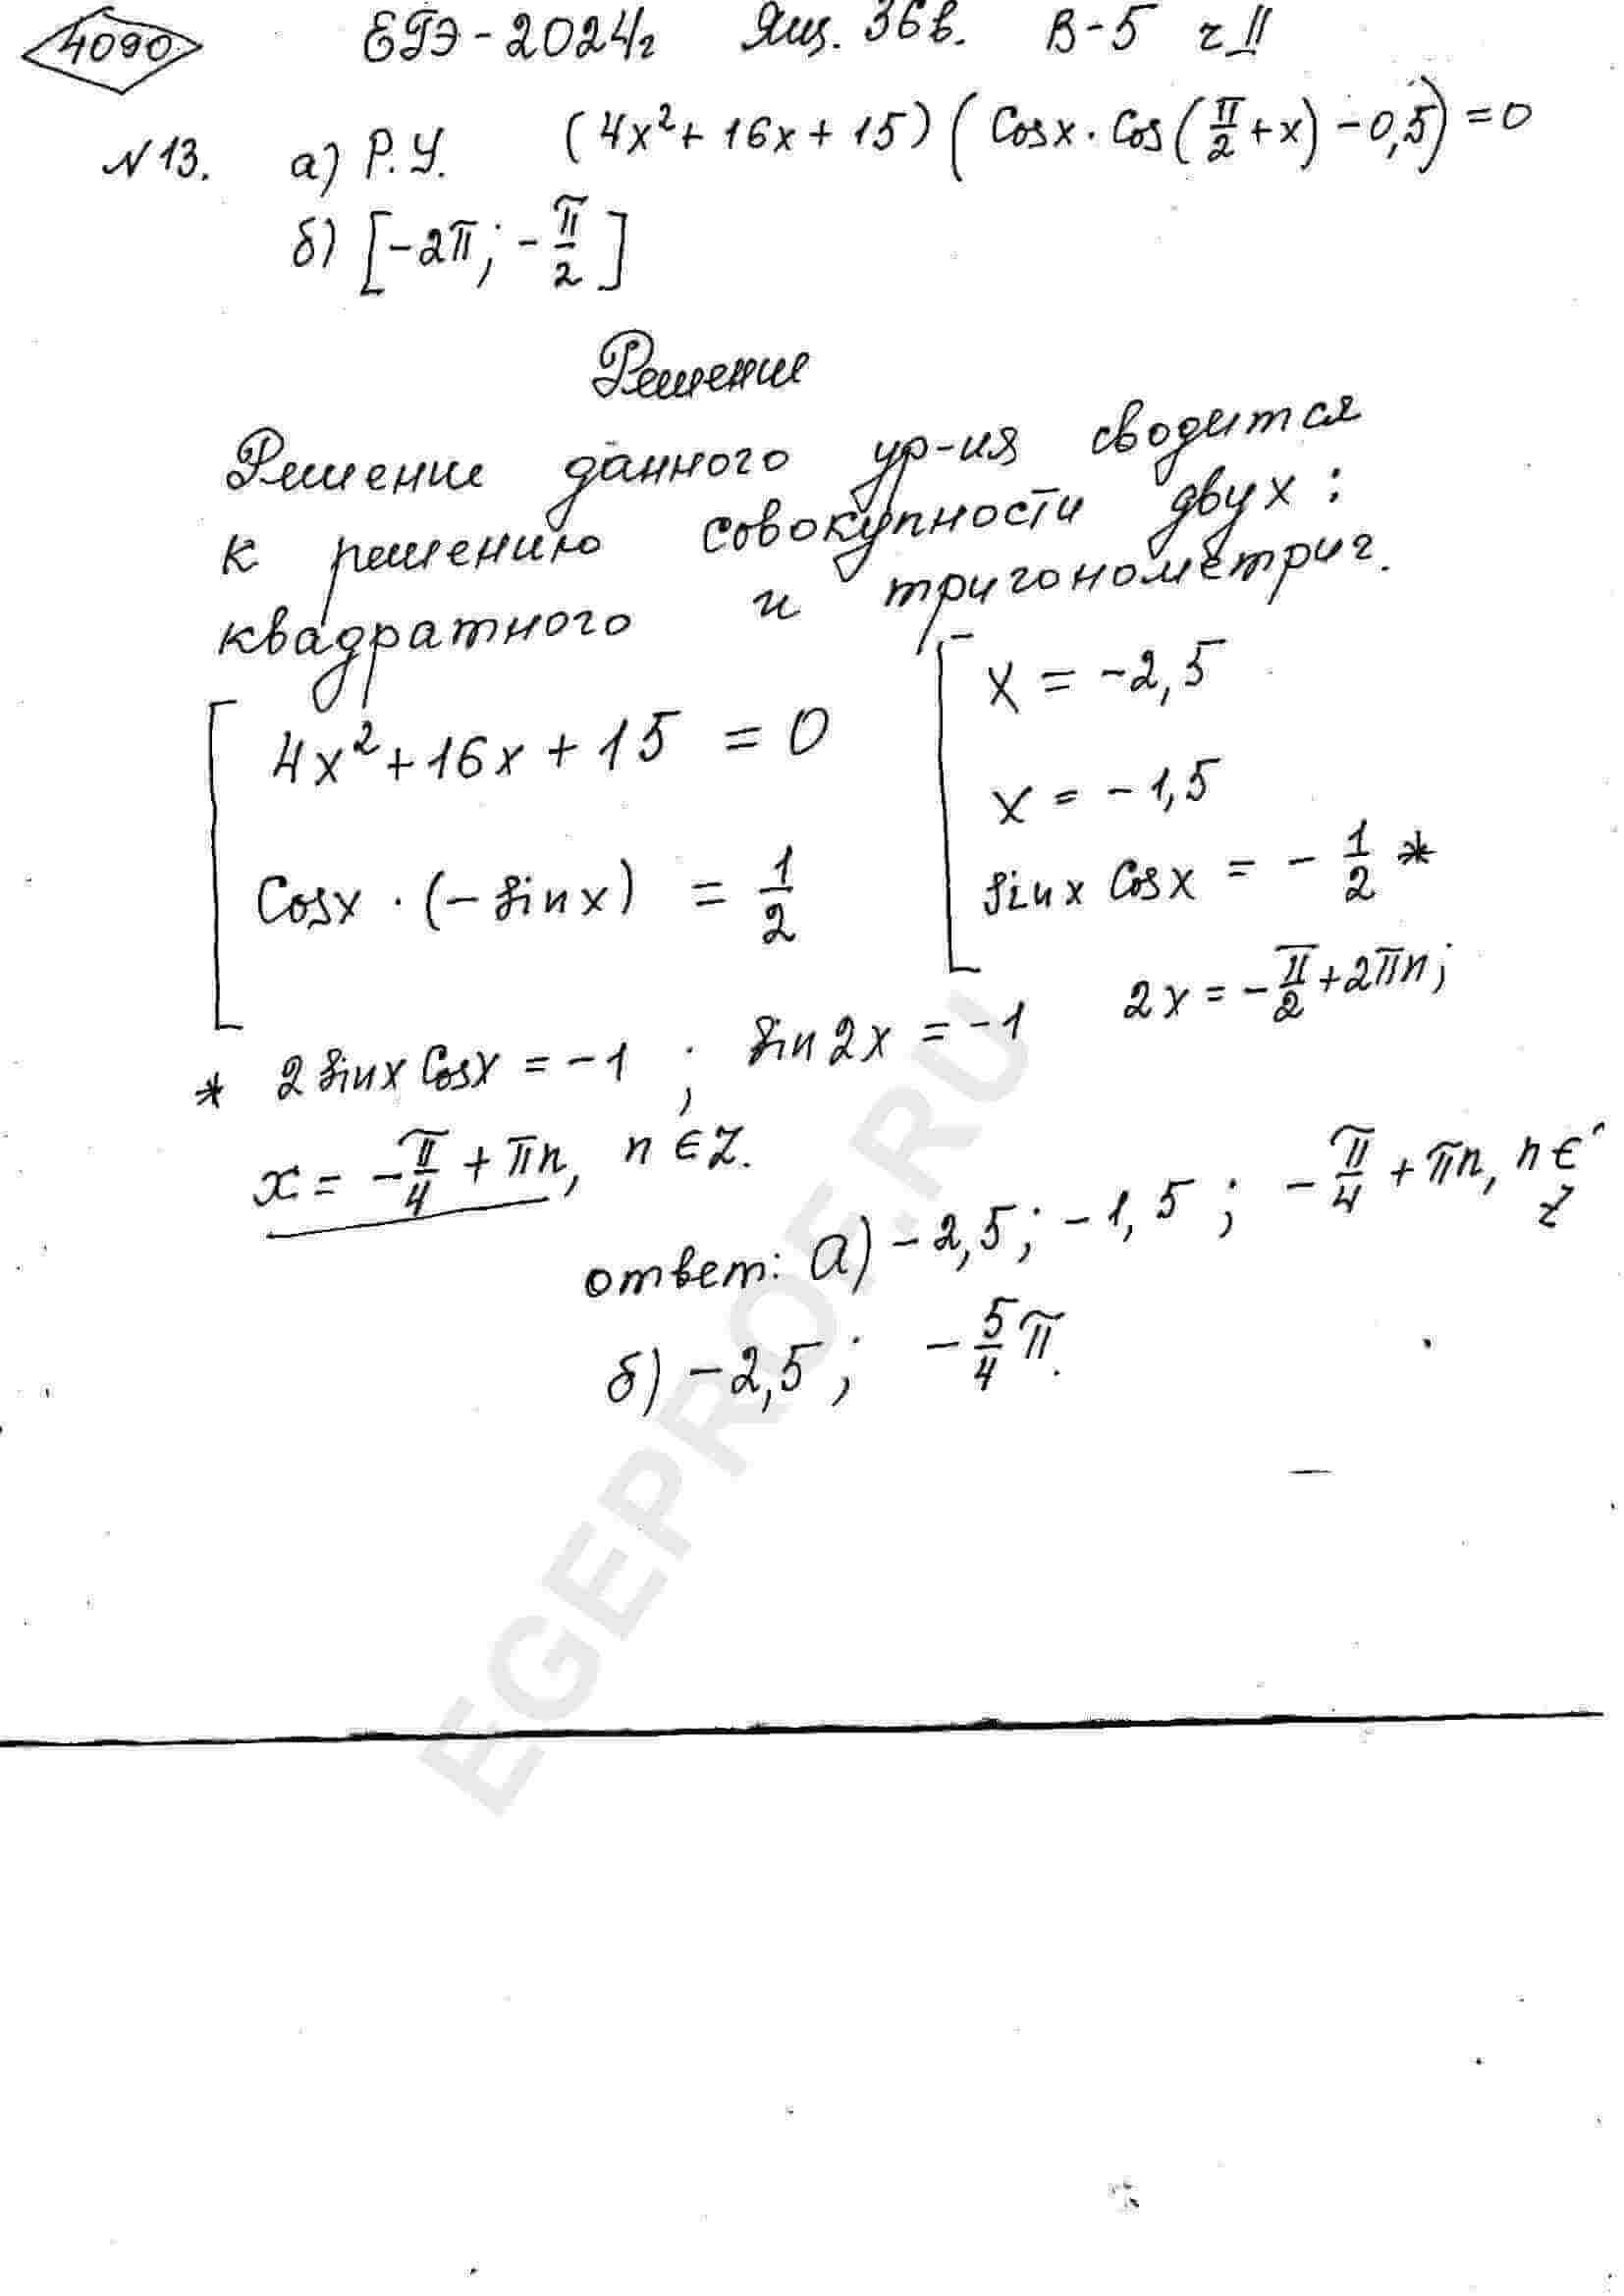 4090
ЕГЭ-2024г Ящ. 36в. В-5 ч II
N13. а) Р.У. (4x² + 16x + 15)(Cosx · Cos(π/2 + x) - 0,5) = 0
б) [-2π; -π/2]
Решение
Решение данного ур-ия сводится
к решению совокупности двух:
квадратного и тригонометрич.
[ 4x² + 16x + 15 = 0
Cosx · (- sinx) = 1/2
[ x = -2,5
x = -1,5
sinx Cosx = - 1/2 *
* 2 sinx Cosx = -1 ; sin2x = -1 2x = - π/2 + 2πn;
x = - π/4 + πn, n ∈ Z.
ответ: а) -2,5; -1,5; - π/4 + πn, n ∈ Z
б) -2,5; - 5/4 π.
EGEPROF.RU